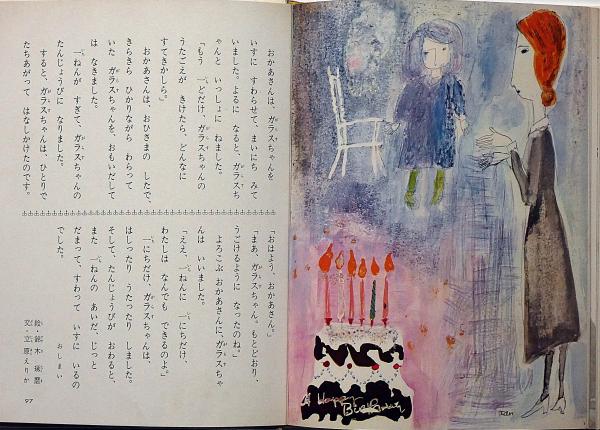 おかあさんは、ガラスちゃんを
いすに すわらせて、まいにち みて
いました。よるに なると、ガラスち
ゃんと いっしょに ねました。
「もう 一どだけ、ガラスちゃんの
うたごえが きけたら、どんなに
すてきかしら。」
おかあさんは、おひさまの したで、
きらきら ひかりながら わらって
いた ガラスちゃんを、おもいだして
は なきました。
一ねんが すぎて、ガラスちゃんの
たんじょうびに なりました。
すると、ガラスちゃんは、ひとりで
たちあがって はなしかけたのです。
「おはよう、おかあさん。」
「まあ、ガラスちゃん。もとどおり、
うごけるように なったのね。」
よろこぶ おかあさんに、ガラスちゃ
んは いいました。
「ええ、一ねんに 一にちだけ、
わたしは なんでも できるのよ。」
一にちだけ、ガラスちゃんは、
はしったり うたったり しました。
そして、たんじょうびが おわると、
また 一ねんの あいだ、じっと
だまって、すわって いすに いるの
でした。
おしまい
絵・鈴木 琢磨
文・立原えりか
97
A Happy
Birthday